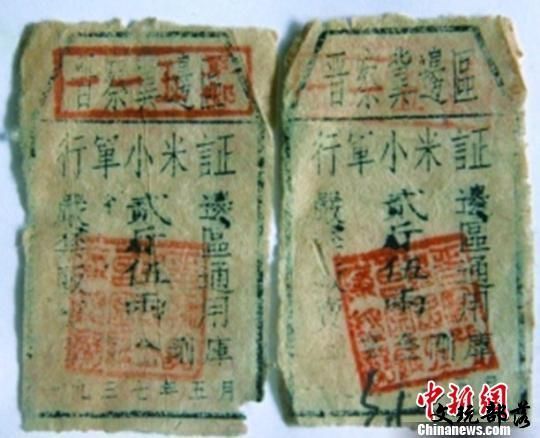 晋察冀邊區
行軍小米証
邊區通用
貳斤伍兩
嚴禁販
庫
一九三七年五月
晋察冀邊區
行軍小米証
邊區通用
貳斤伍兩
嚴禁
庫
中新网
部落
Chinanews.com